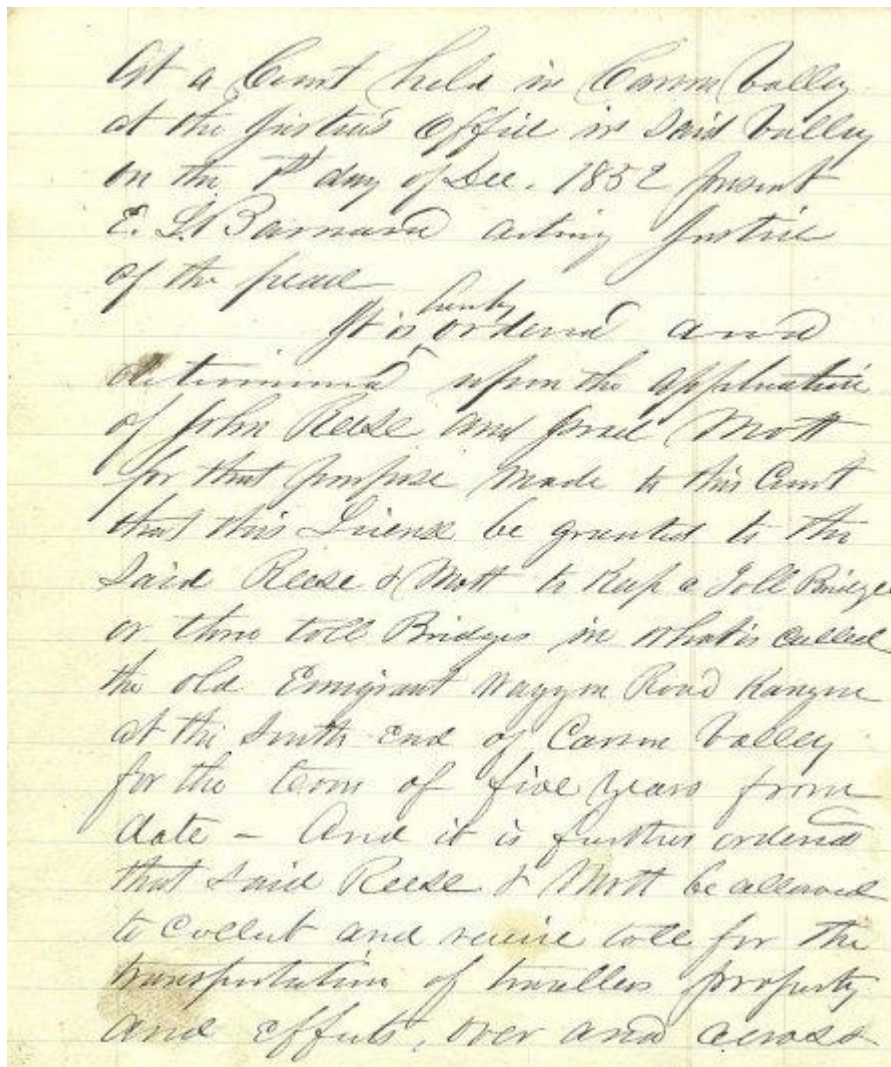 At a Court held in Carson Valley
at the Justice's Office in Said Valley
on the 1st day of Dec. 1852 present
E. L. Barnard acting Justice
of the peace
hereby
It is ordered and
determined upon the application
of John Reese and Israel Mott
for that purpose made to this Court
that this License be granted to the
Said Reese & Mott to Keep a Toll Bridge
or three toll Bridges in what is called
the old Emigrant Waggon Road Kanyon
at the South End of Carson Valley
for the term of five years from
date - And it is further ordered
that Said Reese & Mott be allowed
to Collect and receive toll for the
transportation of travellers property
and effects, over and across